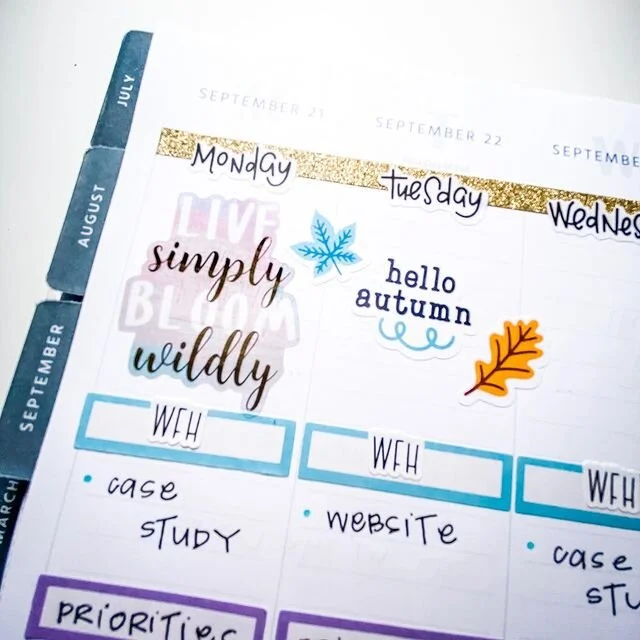 JULY
AUGUST
SEPTEMBER
MARCH
SEPTEMBER 21
SEPTEMBER 22
SEPTEMBE
Monday
Tuesday
Wednes
LIVE
simply
BLOOM
wildly
hello
autumn
WFH
WFH
WFH
• case
STUDY
• WEBSITE
• case
STU
PRIORITIES